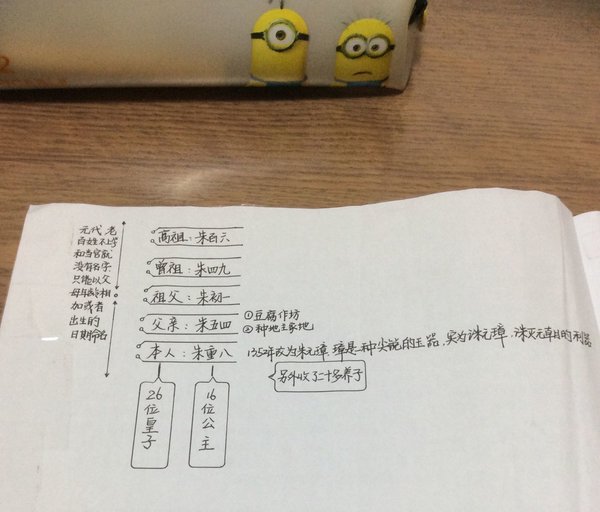 元代老
百姓不上学
和当官就
没有名字
只能以父
母年龄相
加或者
出生的
日期命名
高祖：朱百六
曾祖：朱四九
祖父：朱初一
父亲：朱五四
①豆腐作坊
②种地主家地
本人：朱重八
1352年改为朱元璋，璋是一种尖锐的玉器，实为诛元璋，诛灭元朝的利器
另外收了二十多养子
26位皇子
16位公主